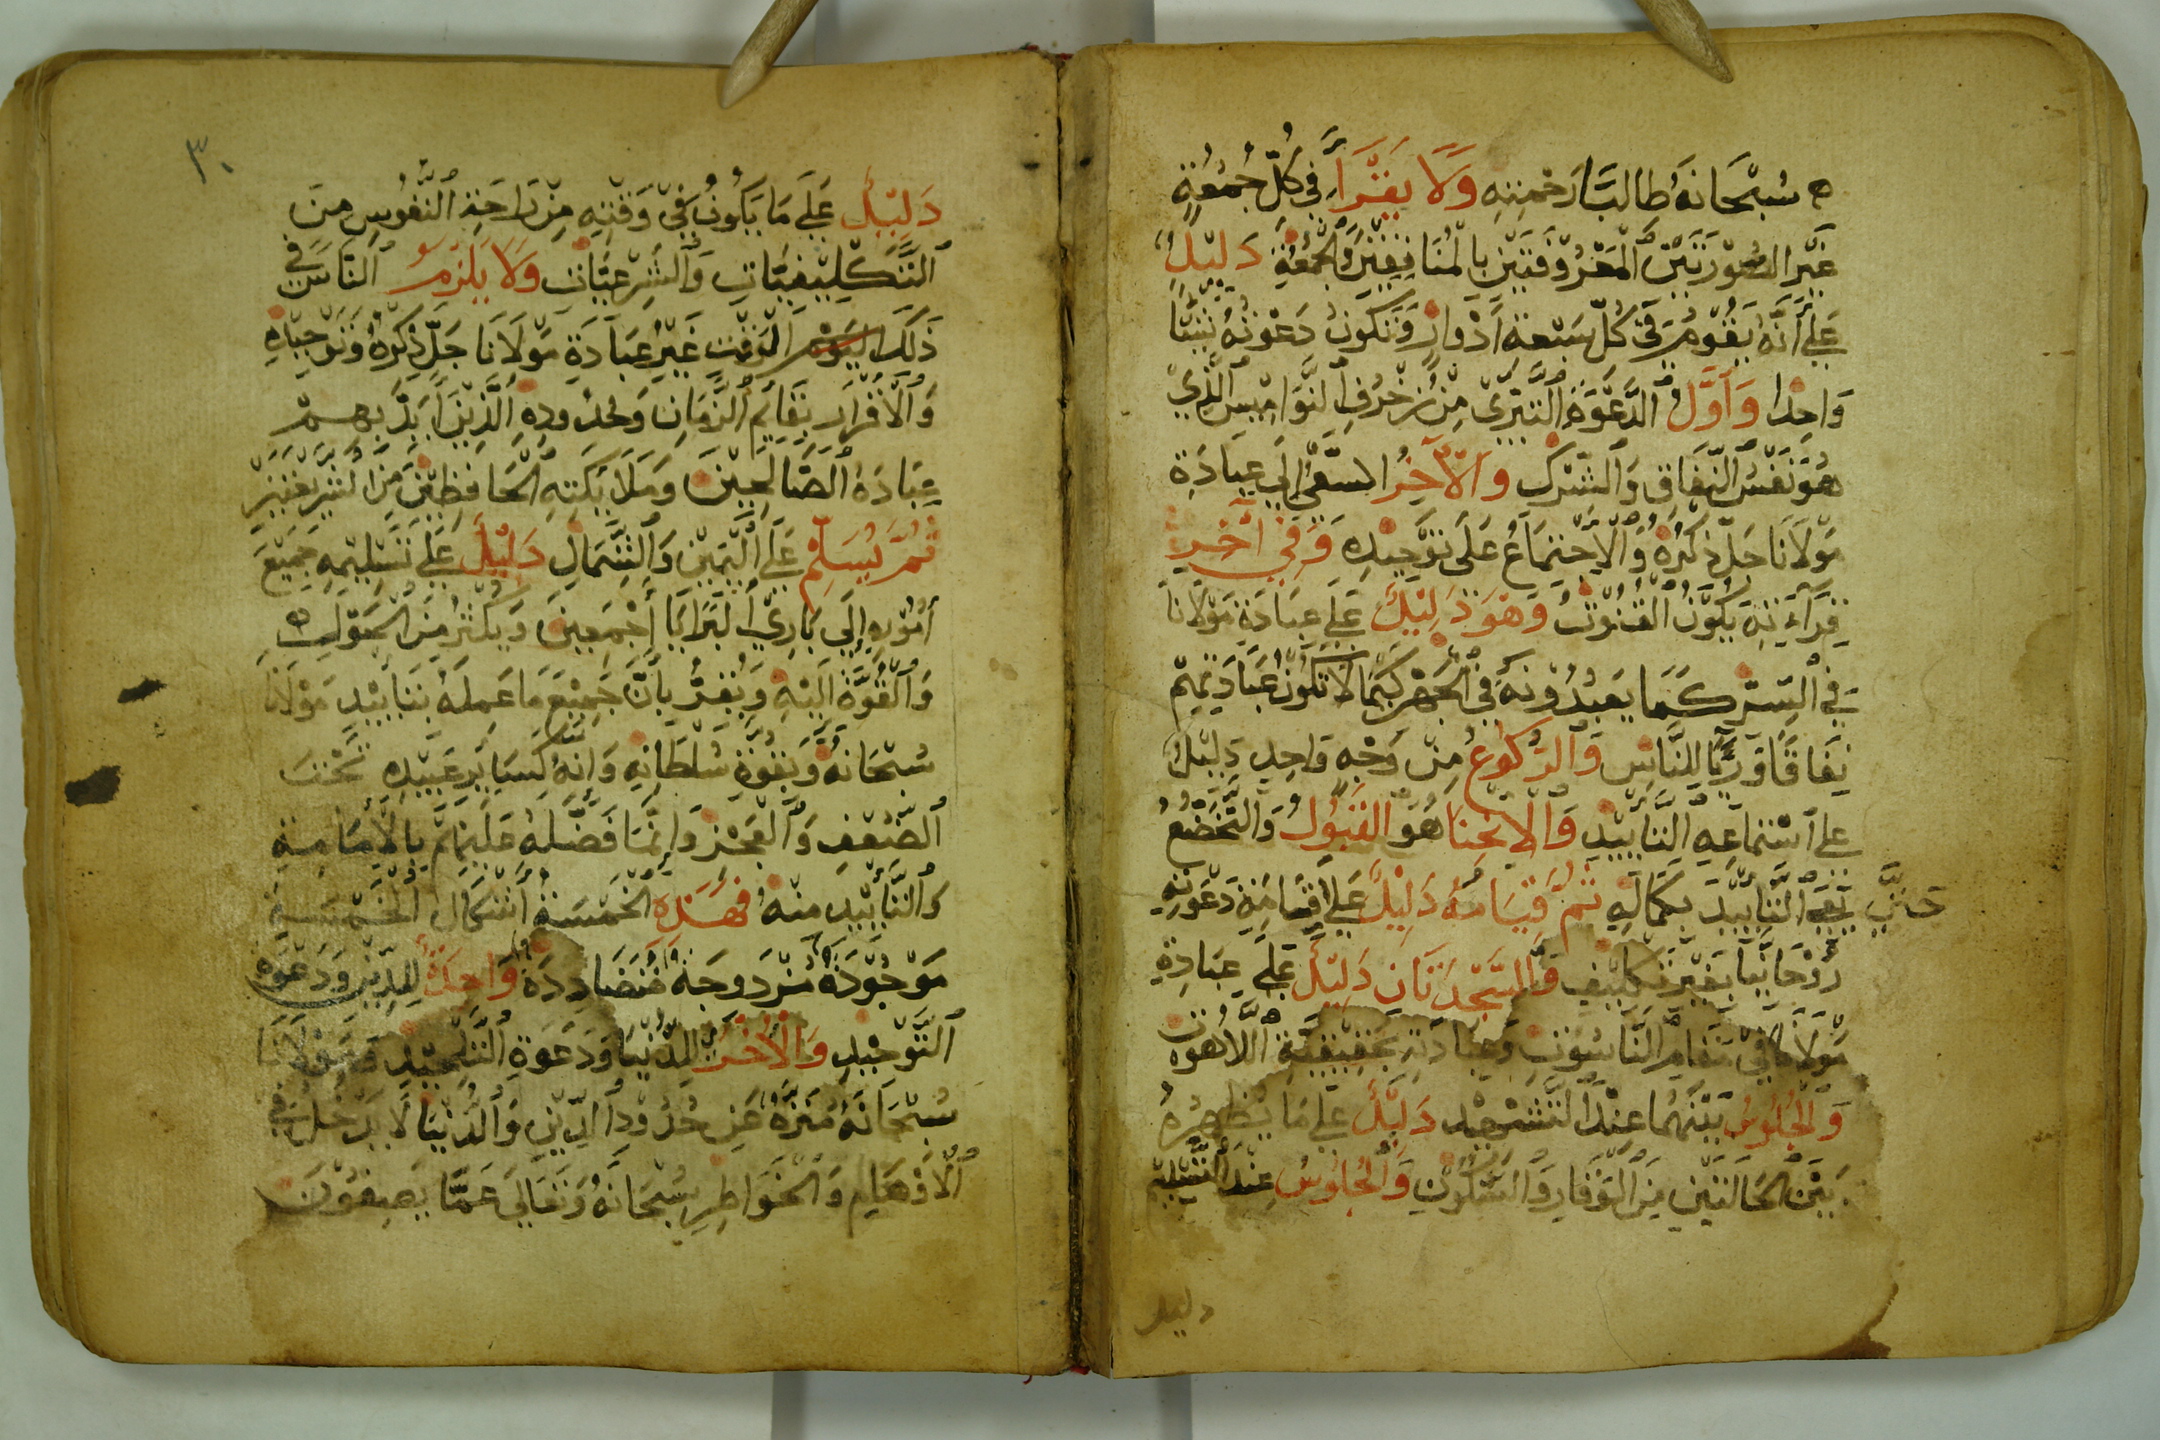 ه سُبْحَانَهُ طَالِبًا رَحْمِتِهِ وَلَا يَقْرَأُ فِي كُلِّ جُمْعَةٍ
غَيْرَ السُّورَتَيْنِ الْمَعْرُوفَتَيْنِ بِالْمُنَافِقِيْنَ وَالْجُمْعَةِ دَلِيْلٌ
عَلَى أَنَّهُ يَقُوْمُ فِي كُلِّ سَبْعَةِ أَدْوَارٍ وَتَكُونُ دَعْوَتُهُ شَيْئًا
وَاحِدًا وَأَوَّلُ الدَّعْوَةِ التَّبَرِّي مِنْ زُخْرُفِ النَّوَامِيْسِ الَّذِيْ
هُوَ نَفْسُ النِّفَاقِ وَالشِّرْكِ وَالْآخِرُ السَّعْيُ إِلَى عِبَادَةِ
مَوْلَانَا جَلَّ ذِكْرُهُ وَالْاِجْتِمَاعُ عَلَى تَوْحِيْدِهِ وَفِي آخِرِ
قِرَآءَتِهِ يَكُوْنُ الْقُنُوْتُ وَهُوَ دَلِيْلٌ عَلَى عِبَادَةِ مَوْلَانَا
فِي السِّرِّ كَمَا يَعْبُدُوْنَهُ فِي الْجَهْرِ كَيْمَا لَا تَكُوْنُ عِبَادَتُهُمْ
نِفَاقًا وَرِيًّا لِلنَّاسِ وَالرُّكُوْعُ مِنْ وَجْهٍ وَاحِدٍ دَلِيْلٌ
عَلَى اسْتِمَاعِهِ التَّأْيِيْدِ وَالْاِنْحِنَا هُوَ الْقَبُوْلُ وَالتَّخَضُّعُ
حَتَّى يَقَعَ التَّأْيِيْدُ بِكَمَالِهِ ثُمَّ قِيَامُهُ دَلِيْلٌ عَلَى إِقَامَةِ دَعْوَتِهِ
رُوْحَانِيًّا بِغَيْرِ تَكْلِيْفٍ وَالسَّجْدَتَانِ دَلِيْلٌ عَلَى عِبَادَةِ
مَوْلَانَا فِيْ مَقَامِ النَّاسُوْتِ وَعِبَادَتِهِ بِحَقِيْقِيَّةِ اللَّاهُوْتِ
وَالْجُلُوْسُ بَيْنَهُمَا عِنْدَ التَّشَهُّدِ دَلِيْلٌ عَلَى مَا يُظْهِرُهُ
بَيْنَ الْحَالَتَيْنِ مِنَ الْوَقَارِ وَالسُّكُوْنِ وَالْجُلُوْسُ عِنْدَ التَّسْلِيْمِ
دليل
٣٠
دَلِيْلٌ عَلَى مَا يَكُوْنُ فِيْ وَقْتِهِ مِنْ رَاحَةِ النُّفُوْسِ مِنَ
التَّكْلِيْفِيَّاتِ وَالشَّرْعِيَّاتِ وَلَا يَلْزَمُ النَّاسَ فِي
ذَلِكَ الْيَوْمِ الْوَقْتِ غَيْرُ عِبَادَةِ مَوْلَانَا جَلَّ ذِكْرُهُ وَتَوْحِيْدِهِ
وَالْاِقْرَارِ بِقَايِمِ الزَّمَانِ وَحُدُوْدِهِ الَّذِيْنَ أَيَّدَ بِهِمْ
عِبَادَهُ الصَّالِحِيْنَ وَمَلَايِكَتِهِ الْحَافِظِيْنَ مِنَ الشَّرِيْعَتَيْنِ
ثُمَّ يُسَلِّمُ عَلَى الْيَمِيْنِ وَالشِّمَالِ دَلِيْلٌ عَلَى تَسْلِيْمِهِ جَمِيْعَ
أُمُوْرِهِ إِلَى بَارِئِ الْبَرَايَا أَجْمَعِيْنَ وَيُكْثِرُ مِنَ الْحَوْلِ ه
وَالْقُوَّةِ إِلَيْهِ وَيُقِرُّ بِأَنَّ جَمِيْعَ مَا عَمِلَهُ بِتَأْيِيْدِ مَوْلَانَا
سُبْحَانَهُ وَبِقُوَّةِ سُلْطَانِهِ وَإِنَّهُ كَسَايِرِ عَبِيْدِهِ تَحْتَ
الضُّعْفِ وَالْعَجْزِ وَإِنَّمَا فَضَّلَهُ عَلَيْهِمْ بِالْأِمَامَةِ
وَالتَّأْيِيْدِ مِنْهُ فَهَذِهِ الْخَمْسَةُ أَشْكَالِ الْخَمْسَةِ
مَوْجُوْدَةٌ مُزْدَوِجَةٌ مُتَضَادِدَةٌ وَاحِدَةٌ لِلدِّيْنِ وَدَعْوَةِ
التَّوْحِيْدِ وَالْأُخْرَى لِلدُّنْيَا وَدَعْوَةِ التَّلْحِيْدِ وَمَوْلَانَا
سُبْحَانَهُ مُنَزَّهٌ عَنْ حُدُوْدِ الدِّيْنِ وَالدُّنْيَا لَا يَدْخُلُ فِي
الْأَوْهَامِ وَالْخَوَاطِرِ سُبْحَانَهُ وَتَعَالَى عَمَّا يَصِفُوْنَ